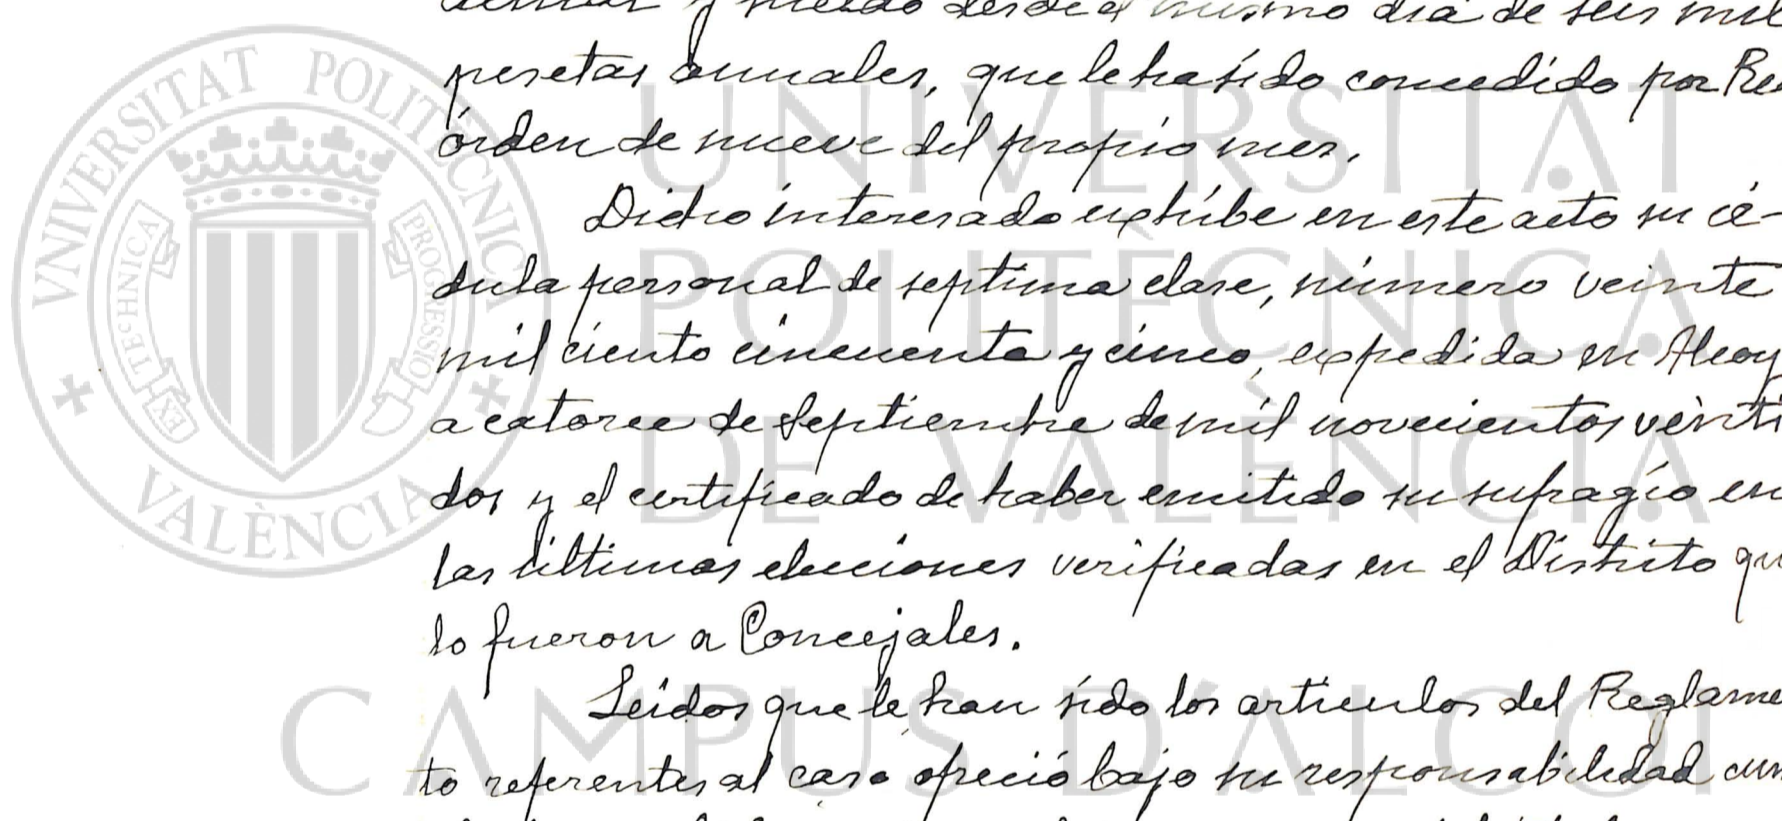 y sueldo desde el mismo dia de seis mil
pesetas anuales, que le ha sido concedido por Re
órden de nueve del propio mes.
Dicho interesado exhibe en este acto su cé-
dula personal de septima clase, número veinte
mil ciento cincuenta y cinco, expedida en Alcoy
a catorce de Septiembre de mil novecientos veinti
dos y el certificado de haber emitido su sufragio en
las últimas elecciones verificadas en el Distrito qu
lo fueron a Concejales.
Leidos que le han sido los articulos del Reglame
to referentes al caso ofreció bajo su responsabilidad cum
UNIVERSITAT POLITÈCNICA VALÈNCIA
EX TECHNICA PROGRESSIO
UNIVERSITAT
POLITÈCNICA
DE VALÈNCIA
CAMPUS D'ALCOI